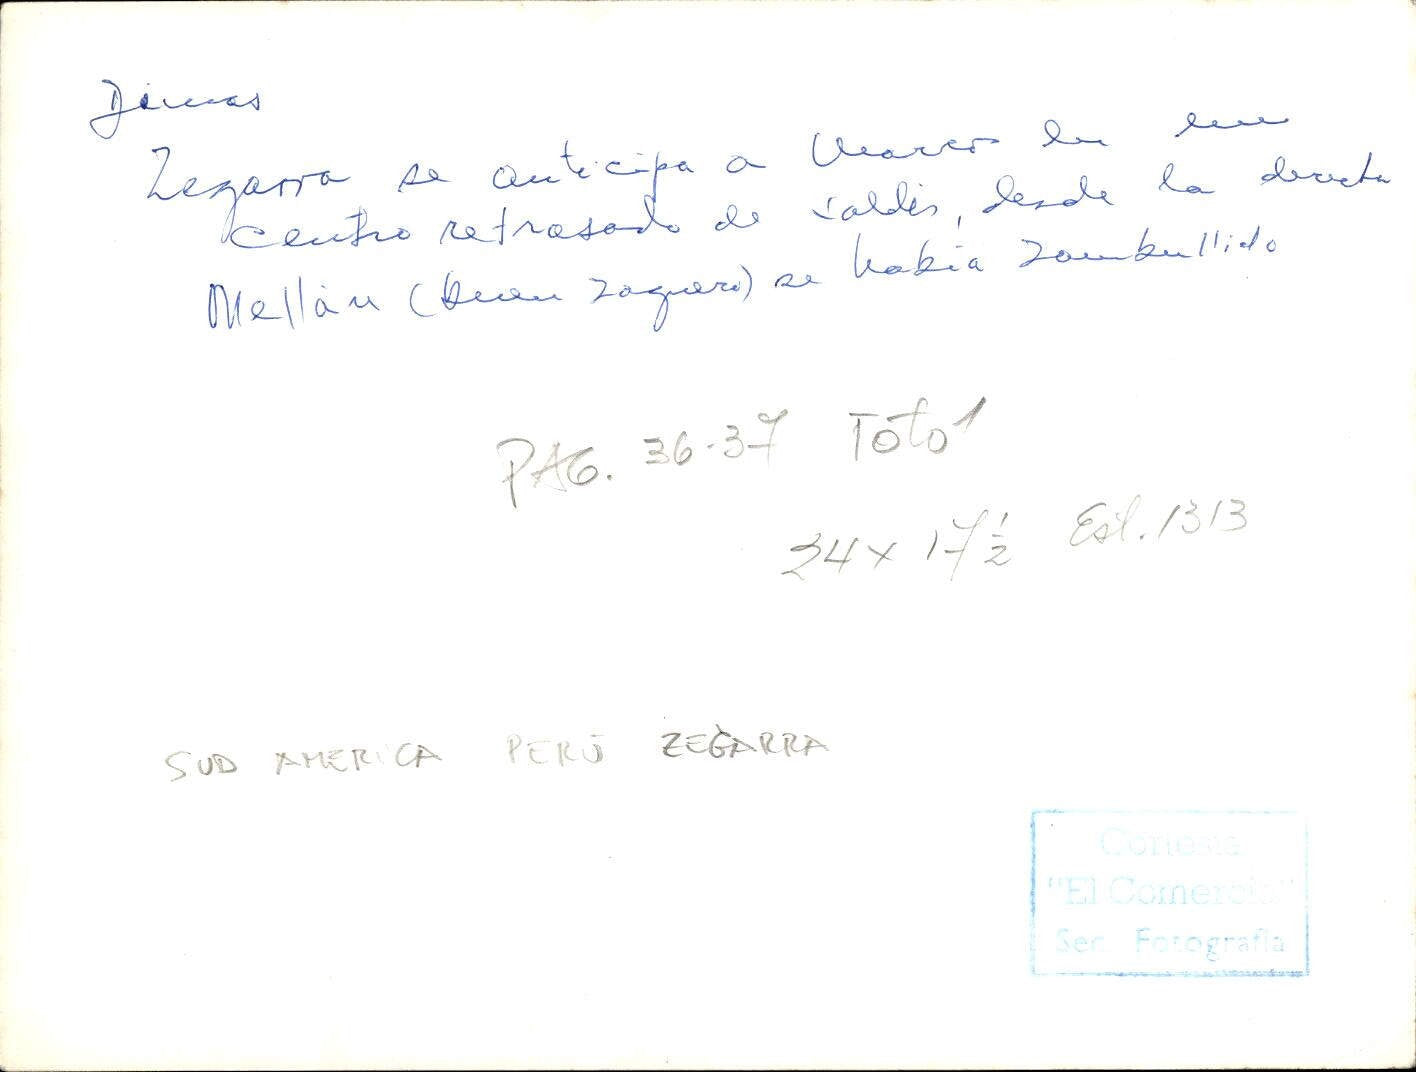 Dimas
Zegarra se anticipa a Marcos en un
centro retrasado de Valdés, desde la derecha
Mellán (buen zaguero) se había zambullido
PAG. 36-37 Toto 1
24 x 17 1/2 Esl. 1313
SUD AMERICA PERÚ ZEGARRA
Cortesia
"El Comercio"
Sec. Fotografia